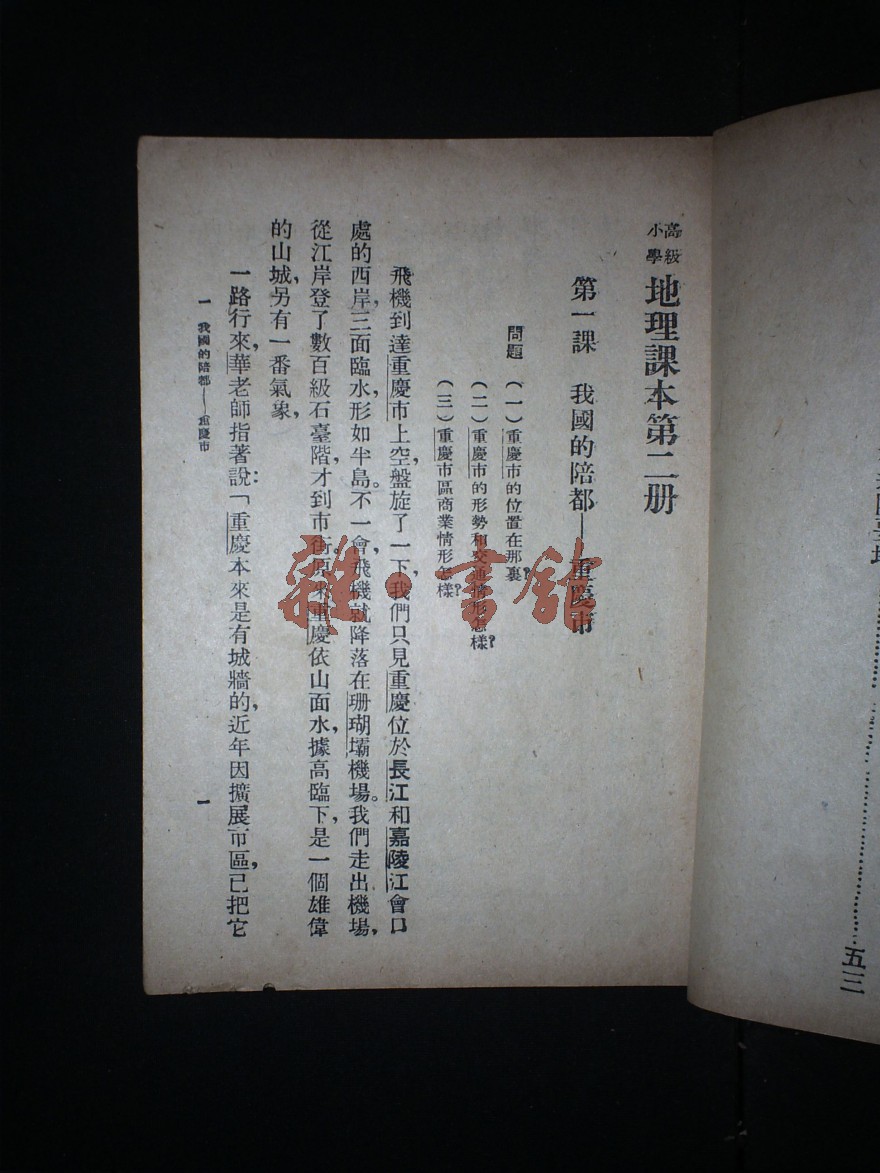 高級小學 地理課本第二册
第一課 我國的陪都——重慶市
問題 (一)重慶市的位置在那裏?
(二)重慶市的形勢和交通情形怎樣?
(三)重慶市區商業情形怎樣?
飛機到達重慶市上空,盤旋了一下,我們只見重慶位於長江和嘉陵江會口
處的西岸,三面臨水,形如半島。不一會,飛機就降落在珊瑚壩機場。我們走出機場,
從江岸登了數百級石臺階,才到市街。原來重慶依山面水,據高臨下,是一個雄偉
的山城,另有一番氣象,
一路行來,華老師指著說:「重慶本來是有城牆的,近年因擴展市區,已把它
一 我國的陪都——重慶市
一
五三
雜·書館